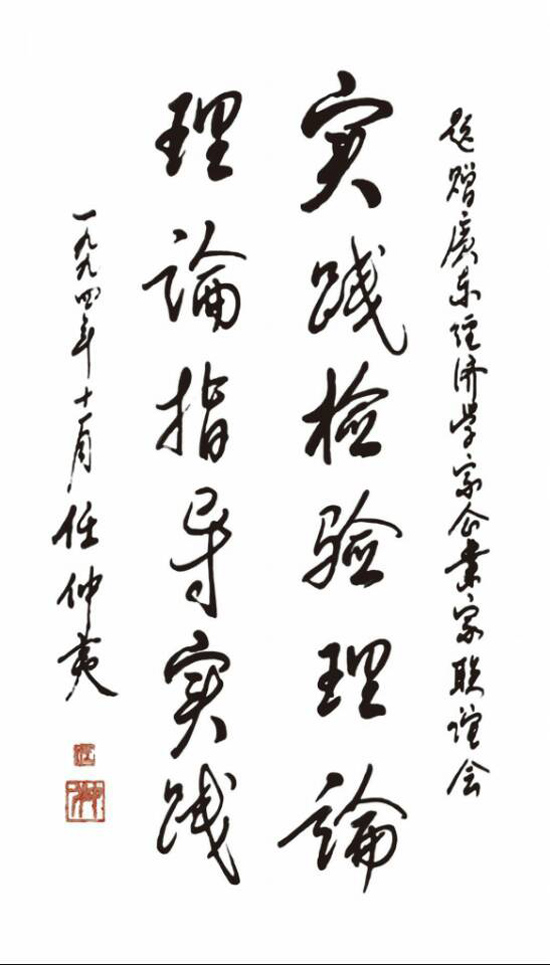 题赠廣东经济学家企業家联谊会
实践检验理論
理論指导实践
一九九四年十一月任仲夷